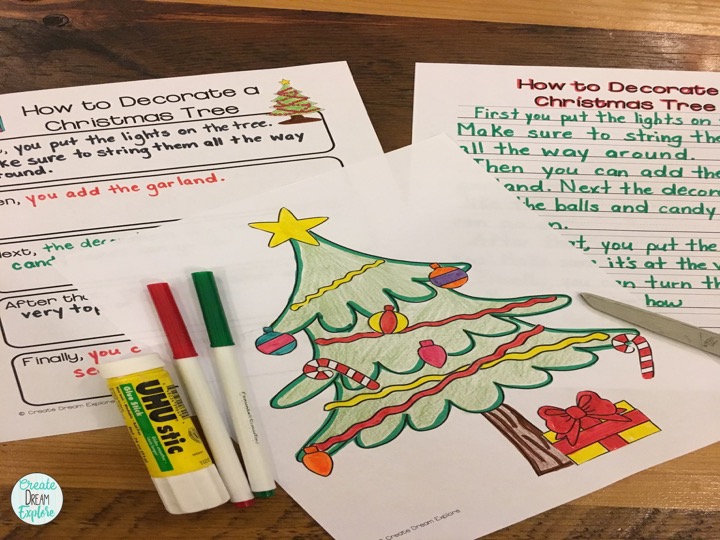 How to Decorate a
Christmas Tree
you put the lights on the tree.
ke sure to string them all the way
round.
en, you add the garland.
Next, the dec
canc
After th
very top
Finally, you c
se
© Create Dream Explore
How to Decorate
Christmas Tree
First you put the lights on
Make sure to string the
all the way around.
Then you can add the
land. Next the decor
the balls and candy
n.
t, you put the
it's at the v
an turn th
how
UHU stic
Glue Stick
© Create Dream Explore
Create
DREAM
Explore